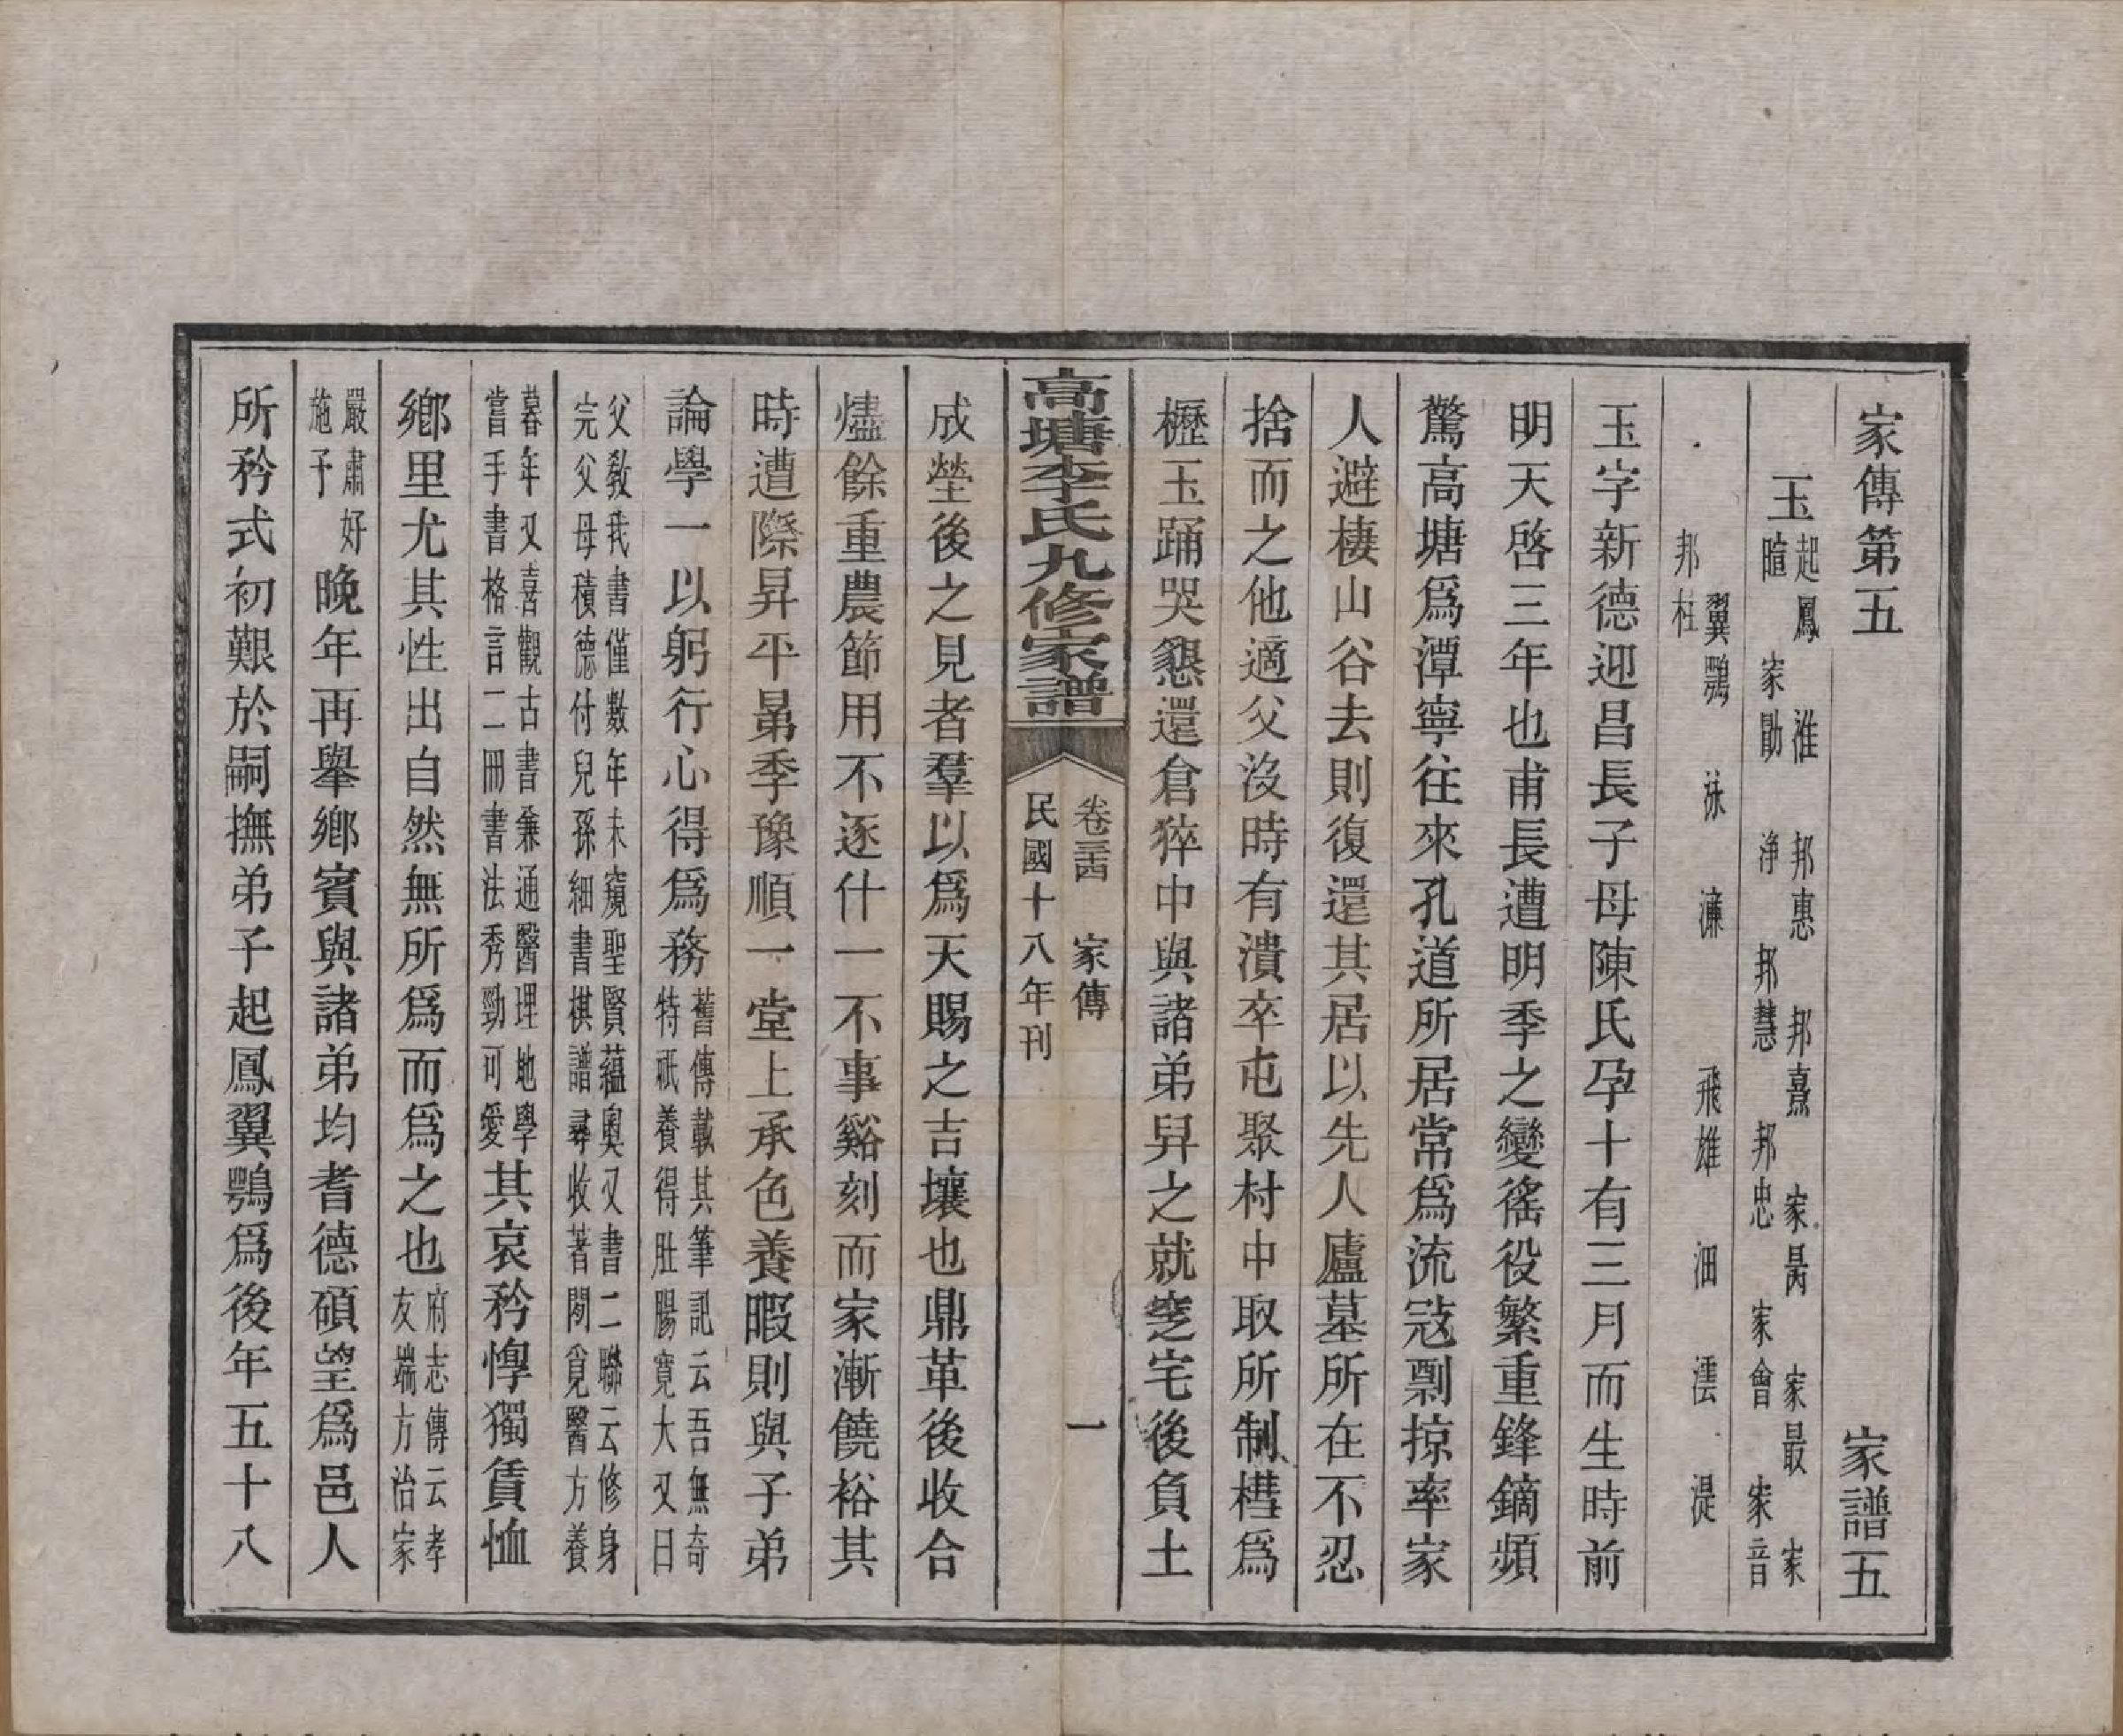 家傳第五　家譜五
玉　起鳳　淮　邦惠　邦熹　家昺　家最　家
暄　家勛　淨　邦慧　邦忠　家會　家音
翼鶚　袾　濂　飛雄　沺　澐　湜
邦柱
玉字新德迎昌長子母陳氏孕十有三月而生時前
明天啓三年也甫長遭明季之變徭役繁重鋒鏑頻
驚高塘爲潭寧往來孔道所居常爲流寇剽掠率家
人避棲山谷去則復還其居以先人廬墓所在不忍
捨而之他適父沒時有潰卒屯聚村中取所制槥爲
櫪玉踊哭懇還倉猝中與諸弟舁之就窆宅後負土
高塘李氏九修家譜　卷三四　家傳　一
民國十八年刊
成塋後之見者羣以爲天賜之吉壤也鼎革後收合
燼餘重農節用不逐什一不事谿刻而家漸饒裕其
時遭際昇平曑季豫順一堂上承色養暇則與子弟
論學一以躬行心得爲務
舊傳載其筆記云吾無奇
特祇養得肚腸寬大又曰
父敎我書僅數年未窺聖賢蘊奧又書二聯云修身
完父母積德付兒孫細書棋譜尋收著閒覓醫方養
暮年又喜觀古書兼通醫理地學
嘗手書格言二冊書法秀勁可愛
其哀矜惸獨賃恤
鄉里尤其性出自然無所爲而爲之也
府志傳云孝
友端方治家
嚴肅好
施予
晚年再舉鄉賓與諸弟均耆德碩望爲邑人
所矜式初艱於嗣撫弟子起鳳翼鶚爲後年五十八